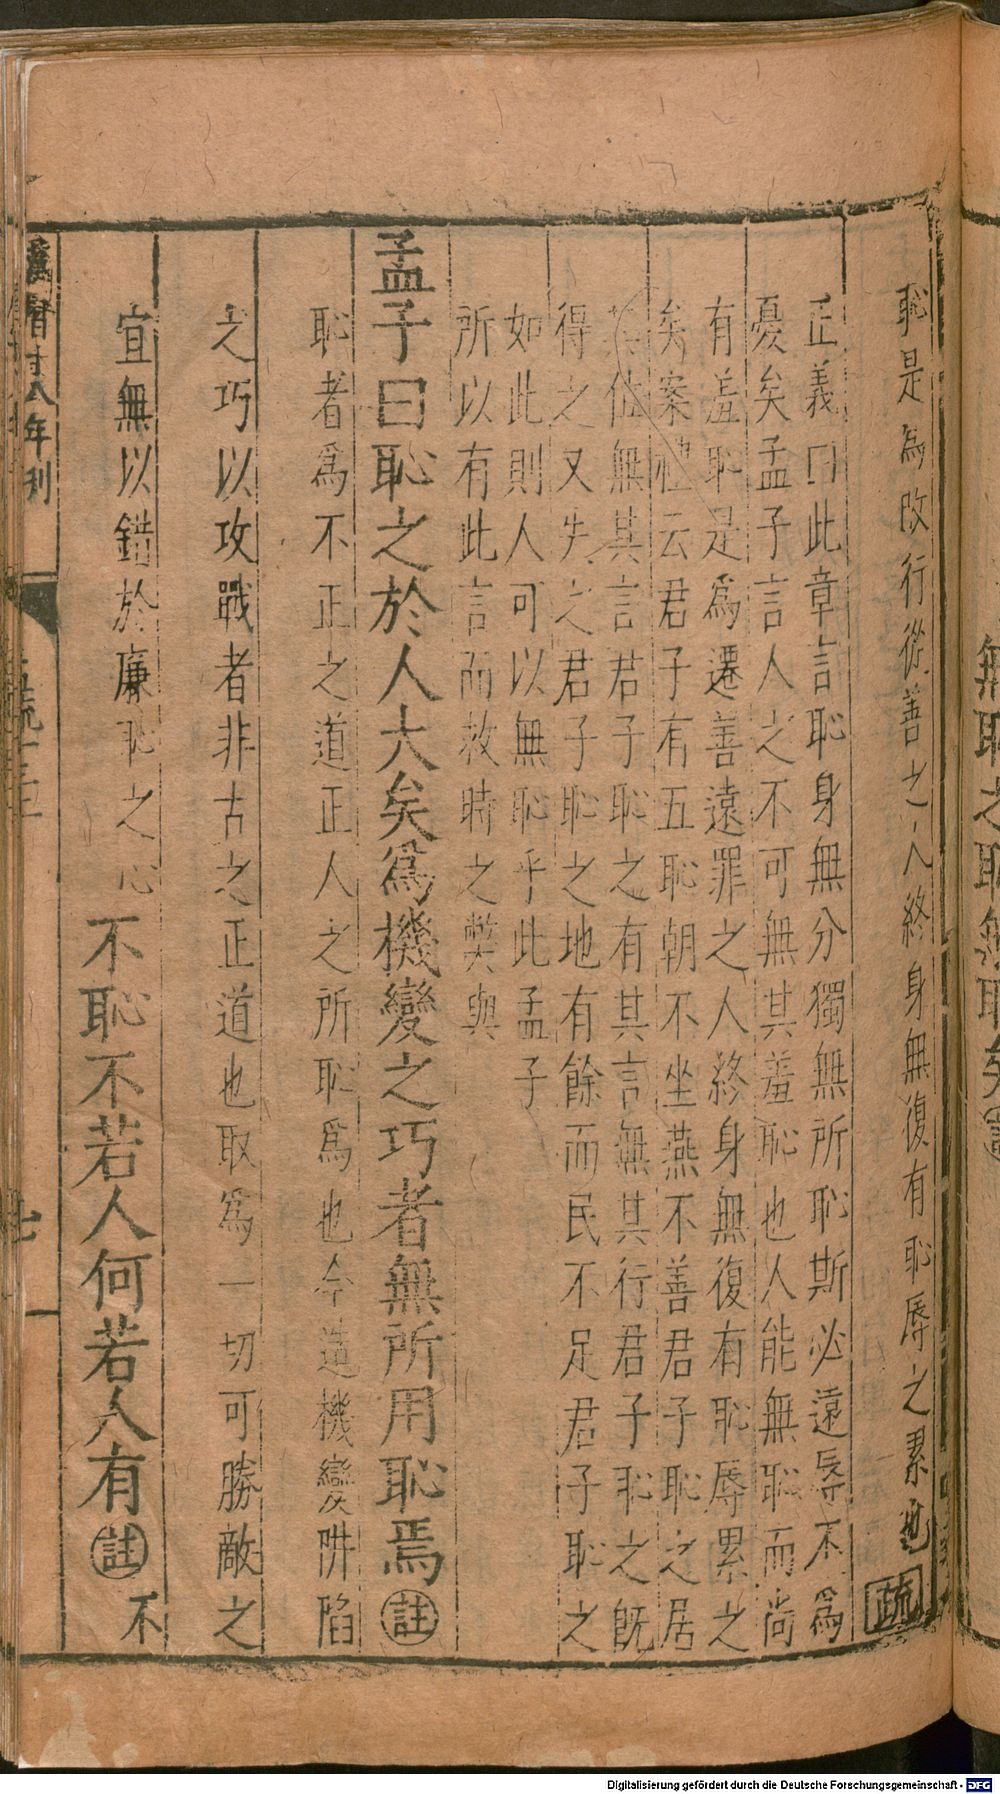 恥是為改行從善之人終身無復有恥辱之累也疏
正義曰此章言恥身無分獨無所恥斯必遠辱不爲
憂矣孟子言人之不可無其羞恥也人能無恥而尚
有羞恥是爲遷善遠罪之人終身無復有恥辱累之
矣案禮云君子有五恥朝不坐燕不善君子恥之居
其位無其言君子恥之有其言無其行君子恥之既
得之又失之君子恥之地有餘而民不足君子恥之
如此則人可以無恥乎此孟子
所以有此言而救時之獘與
孟子曰恥之於人大矣爲機變之巧者無所用恥焉註
恥者爲不正之道正人之所恥爲也今造機變阱陷
之巧以攻戰者非古之正道也取爲一切可勝敵之
宜無以錯於廉恥之心不恥不若人何若人有註不
年刋
無恥之恥無恥矣註
Digitalisierung gefördert durch die Deutsche Forschungsgemeinschaft - DFG